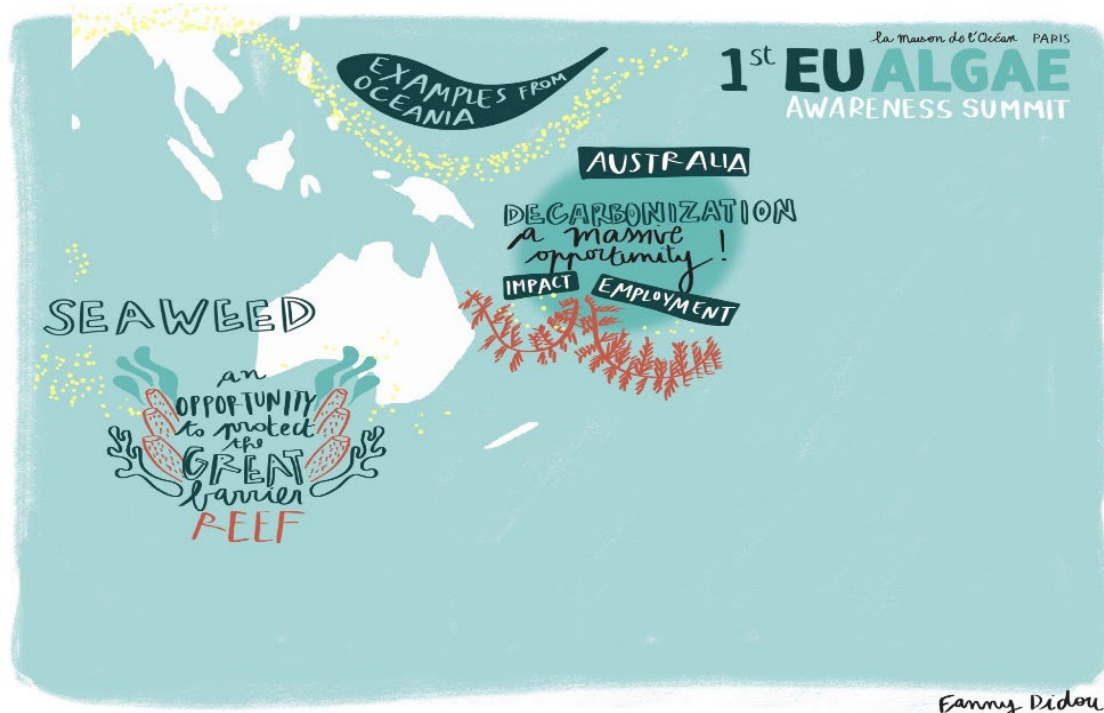 la maison de l'Océan PARIS
1st EU ALGAE
AWARENESS SUMMIT
EXAMPLES FROM
OCEANIA
AUSTRALIA
DECARBONIZATION
a massive
opportunity !
IMPACT
EMPLOYMENT
SEAWEED
an
OPPORTUNITY
to protect
the
GREAT
barrier
REEF
Fanny Didou